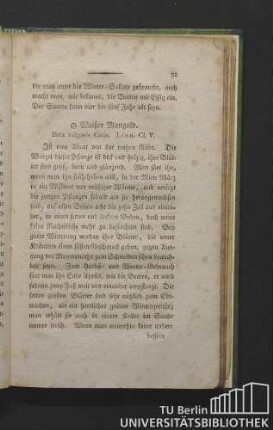 51
die man unter die Winter-Sallate gebraucht, auch
macht man, wie bekannt, die Beeten mit Eßig ein.
Der Saame kann vier bis fünf Jahr alt seyn.
⊙ Weißer Mangold.
Beta vulgaris Cicla. Linn. Cl. V.
Ist eine Abart von der rothen Rübe. Die
Wurzel dieser Pflanze ist dick und holzig, ihre Blät-
ter sind groß, breit und glänzend. Man säet ihn,
wenn man ihn früh haben will, in der Mitte März
in ein Mistbeet von mäßiger Wärme, und versetzt
die jungen Pflanzen sobald sie
auf allen Seiten acht bis zehn Zoll aus einan-
der, in einen guten und lockern Boden, doch wenn
keine Nachtfröste mehr zu befürchten sind. Sie
werden bey guter Wartung ihre Blätter, die unter
Kräutern einen süßen Geschmack geben, gegen Aus-
gang des Mayenmonats zum Schneiden schon brauch-
bar seyn. Zum Herbst- und Winter-Gebrauch
säet man ihn Ende Aprills, wie die Beeten, er wird
sodann zwey Fuß weit von einander verpflanzt. Die
fetten großen Blätter sind sehr nützlich zum Ein-
machen, als ein herrliches grünes Wintergemüß;
man erhält sie auch in einem Keller im Sande
immer frisch. Wenn man mittenhin seine andere
bessern
TU Berlin
UNIVERSITÄTSBIBLIOTHEK